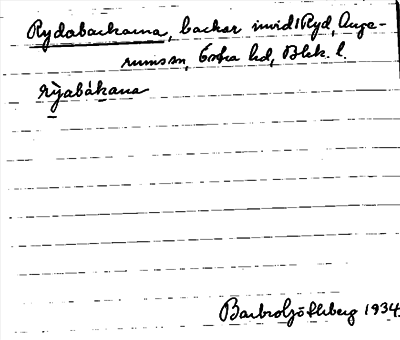 Rydabackarna, backar invid Ryd, Auge-
rums sn, Östra hd, Blek. l.
rỳabákana
Barbro Söderberg 1934.